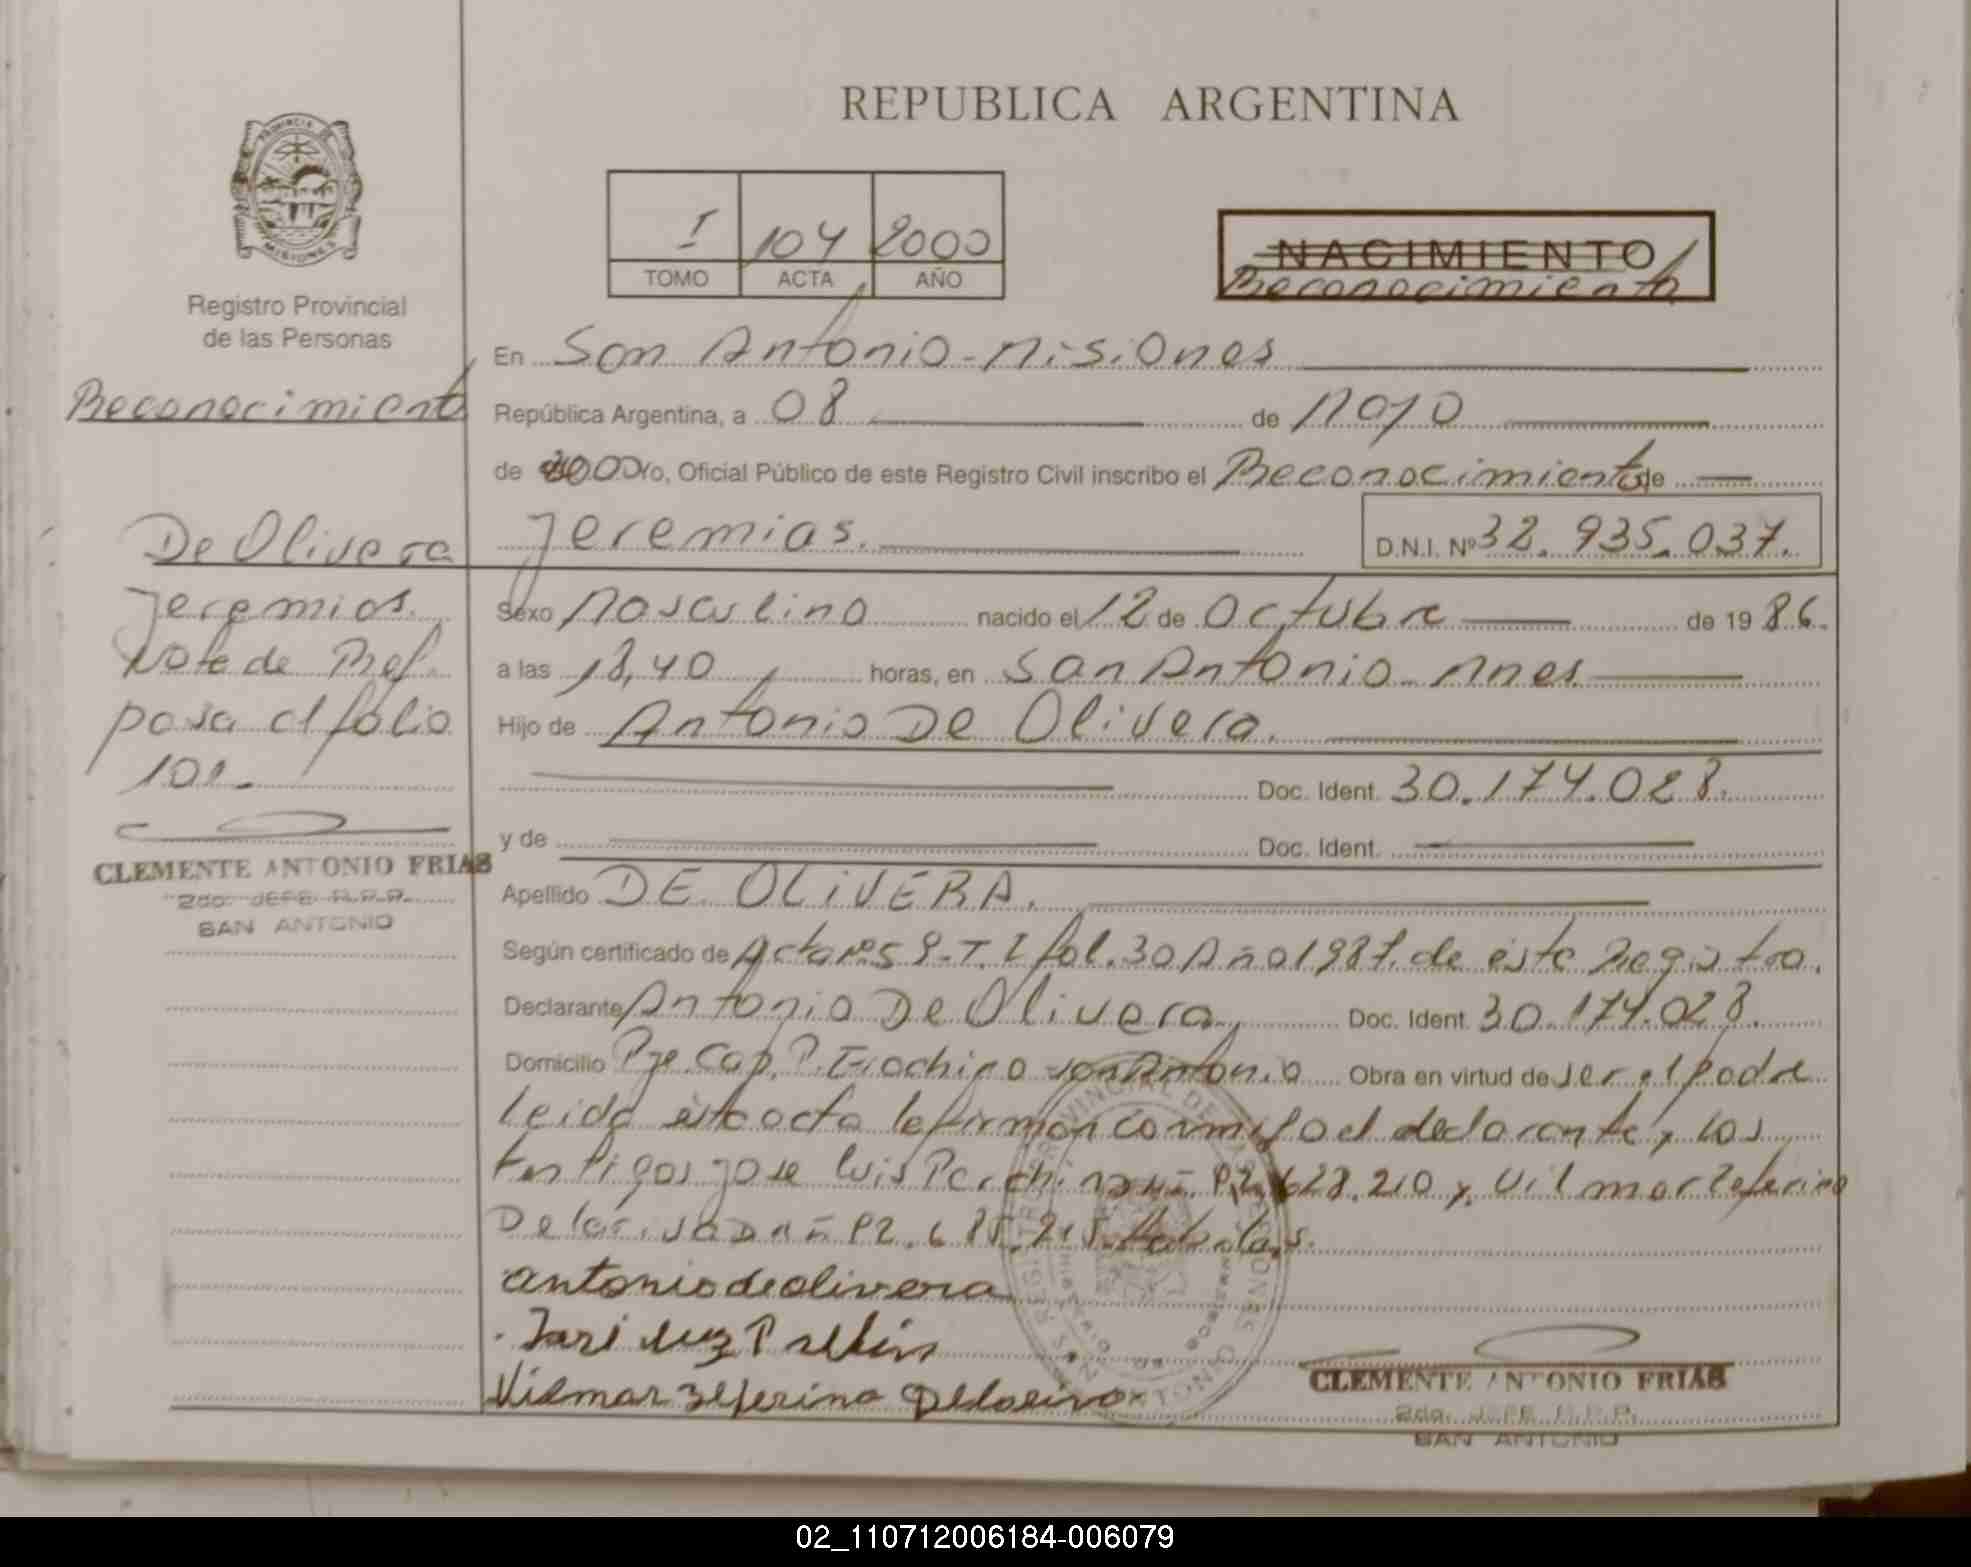 REPUBLICA ARGENTINA
PROVINCIA DE
MISIONES
Registro Provincial
de las Personas
I 104 2000
TOMO ACTA AÑO
NACIMIENTO
Reconocimiento
En San Antonio - Misiones
Reconocimiento
República Argentina, a 08 de Mayo
de 2000 Yo, Oficial Público de este Registro Civil inscribo el Reconocimiento de
De Olivera
Jeremias. D.N.I. Nº 32.935.037.
Jeremias.
Sexo Masculino nacido el 12 de Octubre de 19 86.
Note de Ref.
a las 18,40 horas, en San Antonio Mnes
pasa al folio
101.-
Hijo de Antonio De Olivera.
Doc. Ident. 30.174.028.
y de Doc. Ident.
CLEMENTE ANTONIO FRIAS
2do. JEFE R.P.P.
SAN ANTONIO
Apellido DE OLIVERA.
Según certificado de Acta nº 59-T.I fol.30 Año 1987. de éste Registro.
Declarante Antonio De Olivera, Doc. Ident. 30.174.028.
Domicilio Pje. Cap. P. San Antonio Obra en virtud de ser el padre
Leida ésta acta la firman conmigo el declarante, y los
testigos Jose Luis y Vilmar Zeferino
antonio de olivera
Vilmar Zeferino
CLEMENTE ANTONIO FRIAS
2do. JEFE R.P.P.
SAN ANTONIO
02_110712006184-006079